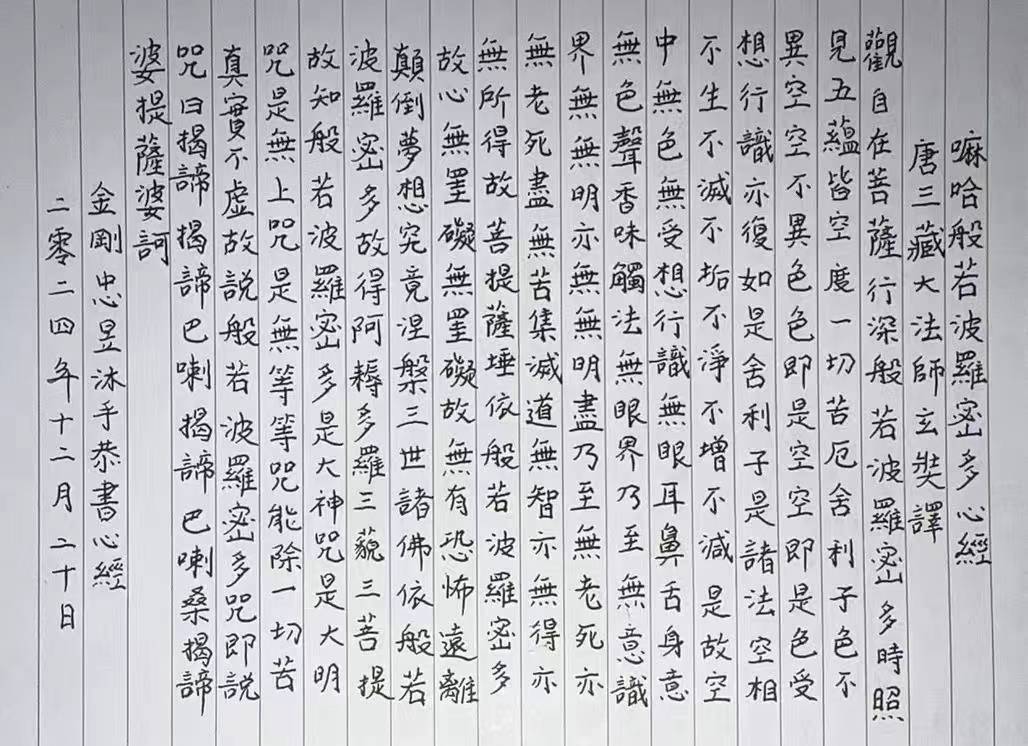 嘛哈般若波羅密多心經
唐三藏大法師玄奘譯
觀自在菩薩行深般若波羅密多時照
見五蘊皆空度一切苦厄舍利子色不
異空空不異色色即是空空即是色受
想行識亦復如是舍利子是諸法空相
不生不滅不垢不淨不增不減是故空
中無色無受想行識無眼耳鼻舌身意
無色聲香味觸法無眼界乃至無意識
界無無明亦無無明盡乃至無老死亦
無老死盡無苦集滅道無智亦無得亦
無所得故菩提薩埵依般若波羅密多
故心無罣礙無罣礙故無有恐怖遠離
顛倒夢想究竟涅槃三世諸佛依般若
波羅密多故得阿耨多羅三藐三菩提
故知般若波羅密多是大神咒是大明
咒是無上咒是無等等咒能除一切苦
真實不虛故説般若波羅密多咒即説
咒曰揭諦揭諦巴喇揭諦巴喇桑揭諦
婆提薩婆訶
金剛忠昱沐手恭書心經
二零二四年十二月二十日